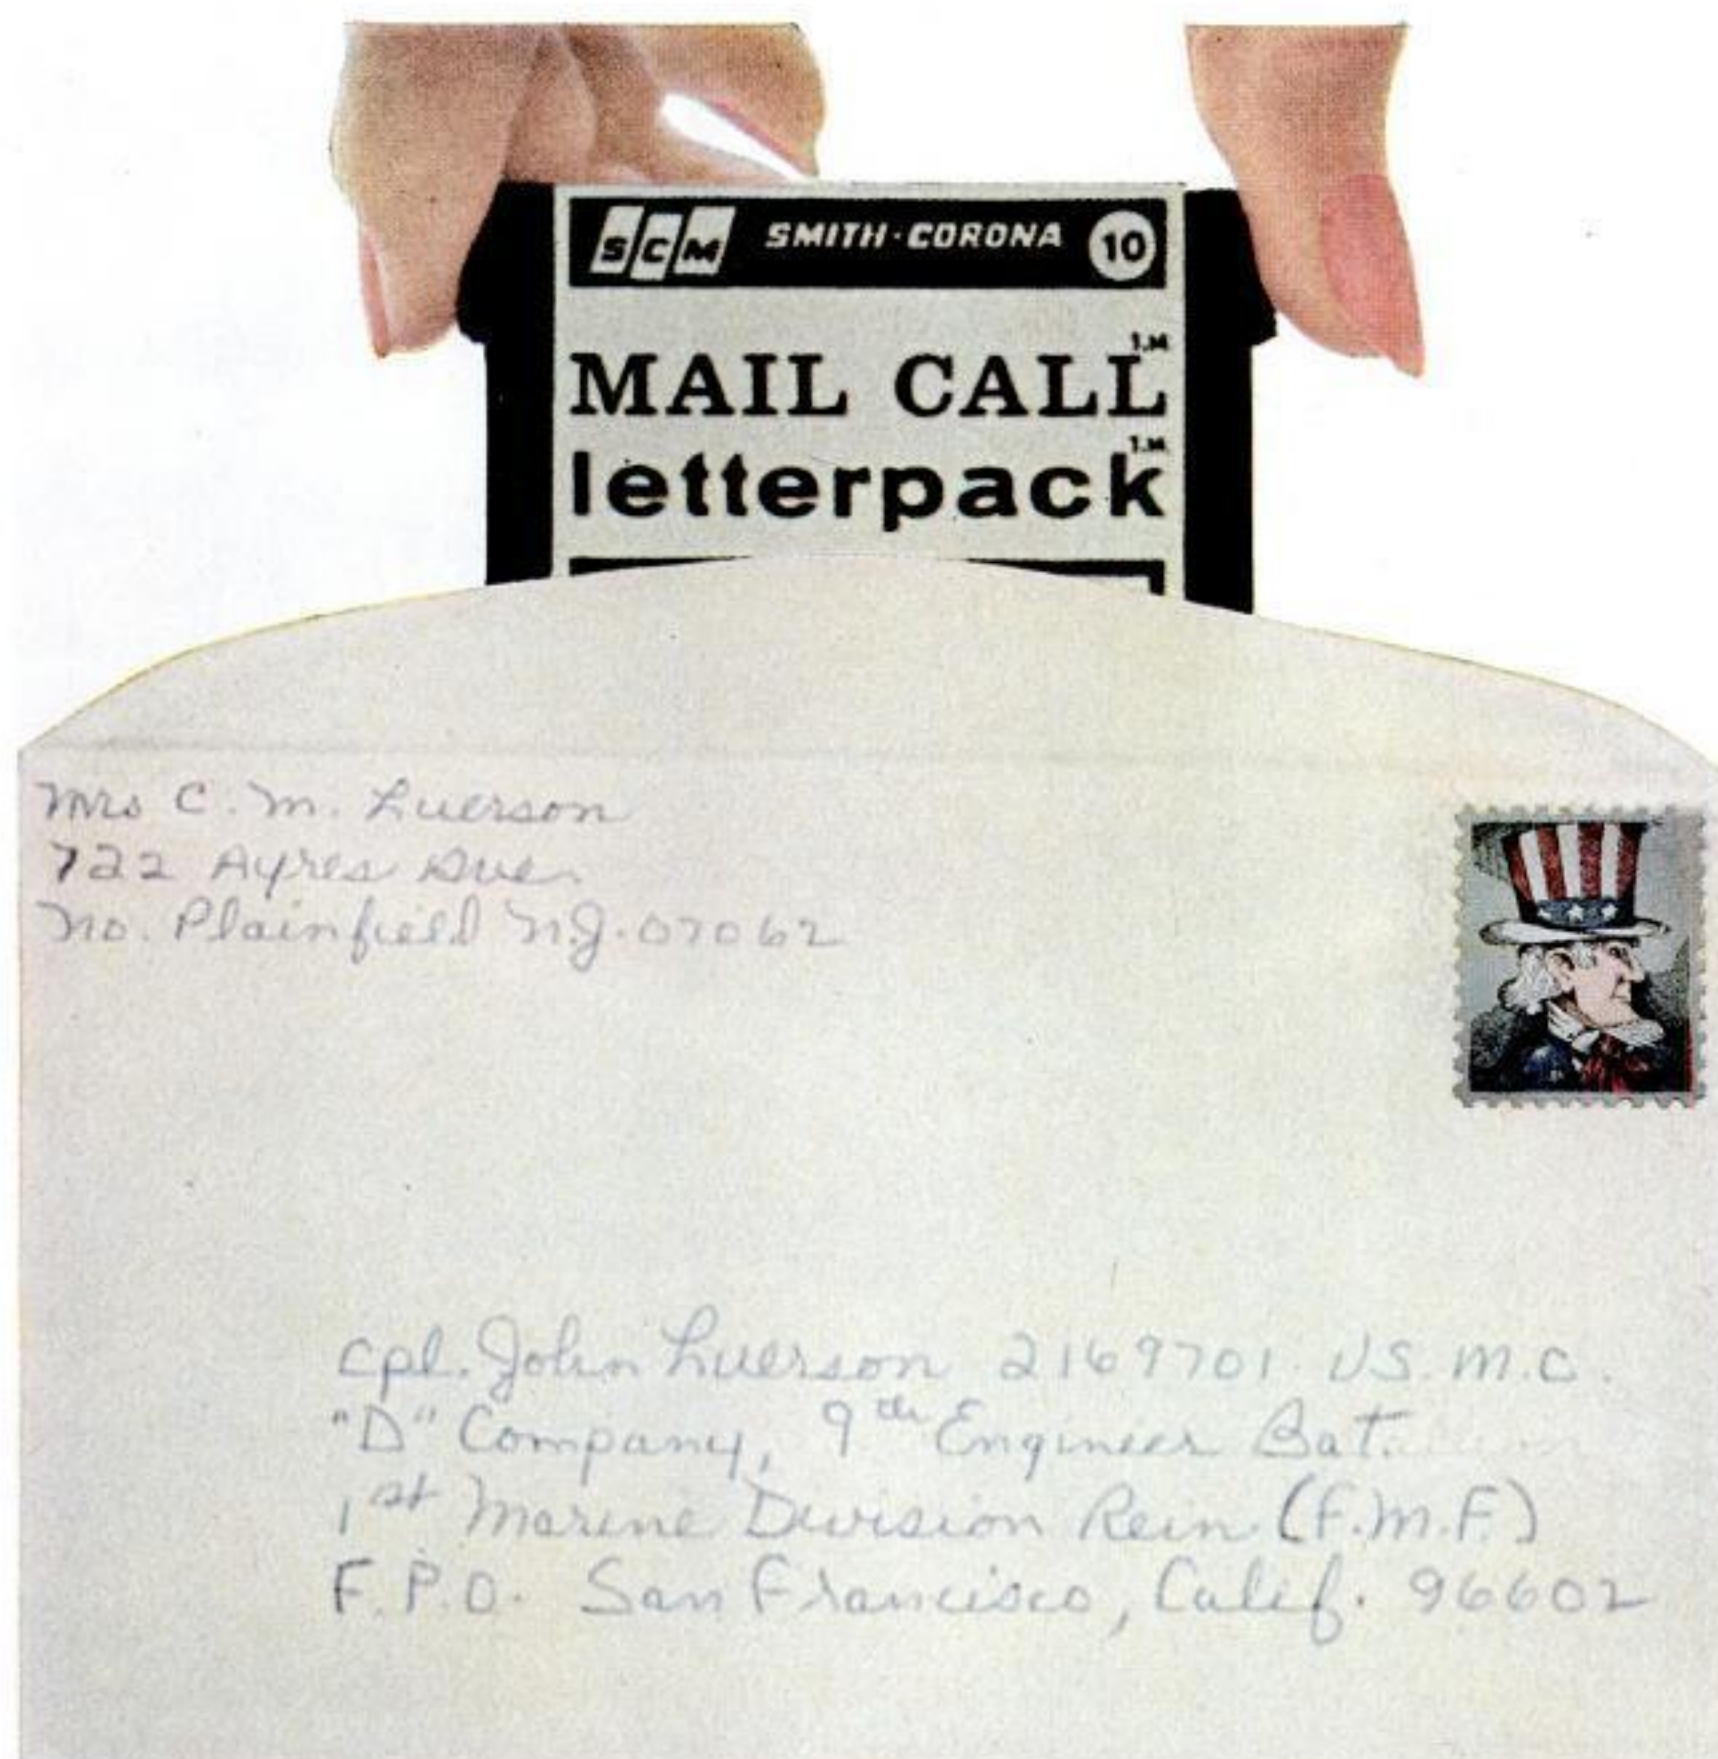 SCM SMITH-CORONA 10
MAIL CALL TM
letterpack TM
Mrs C. M. Luerson
722 Ayres Ave.
No. Plainfield N.J. 07062
Cpl. John Luerson 2169701 U.S. M.C.
"D" Company, 9th Engineer Bat.
1st Marine Division Rein (F.M.F.)
F.P.O. San Francisco, Calif. 96602